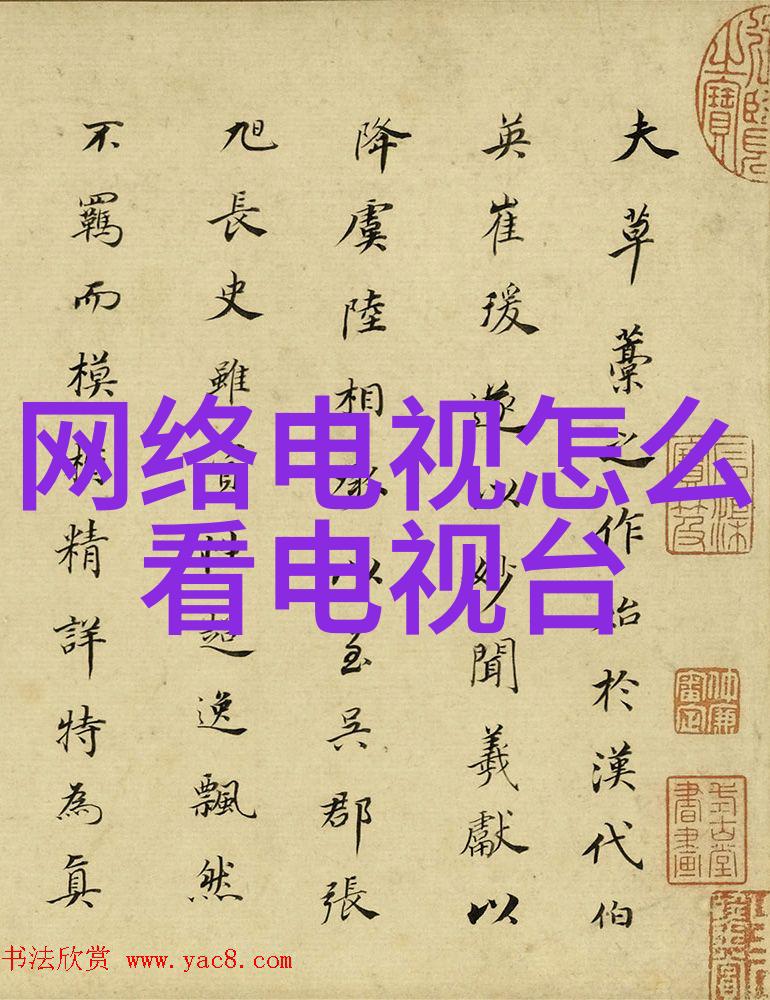 夫草藁之作始於漢代伯
英崔瑗遂以妙聞羲獻以
降虞陸相承以至吳郡張
旭長史雖資性超逸飄然
不羈而模楷精詳特為真
网络电视怎么
看电视台
书法欣赏 www.yac8.com